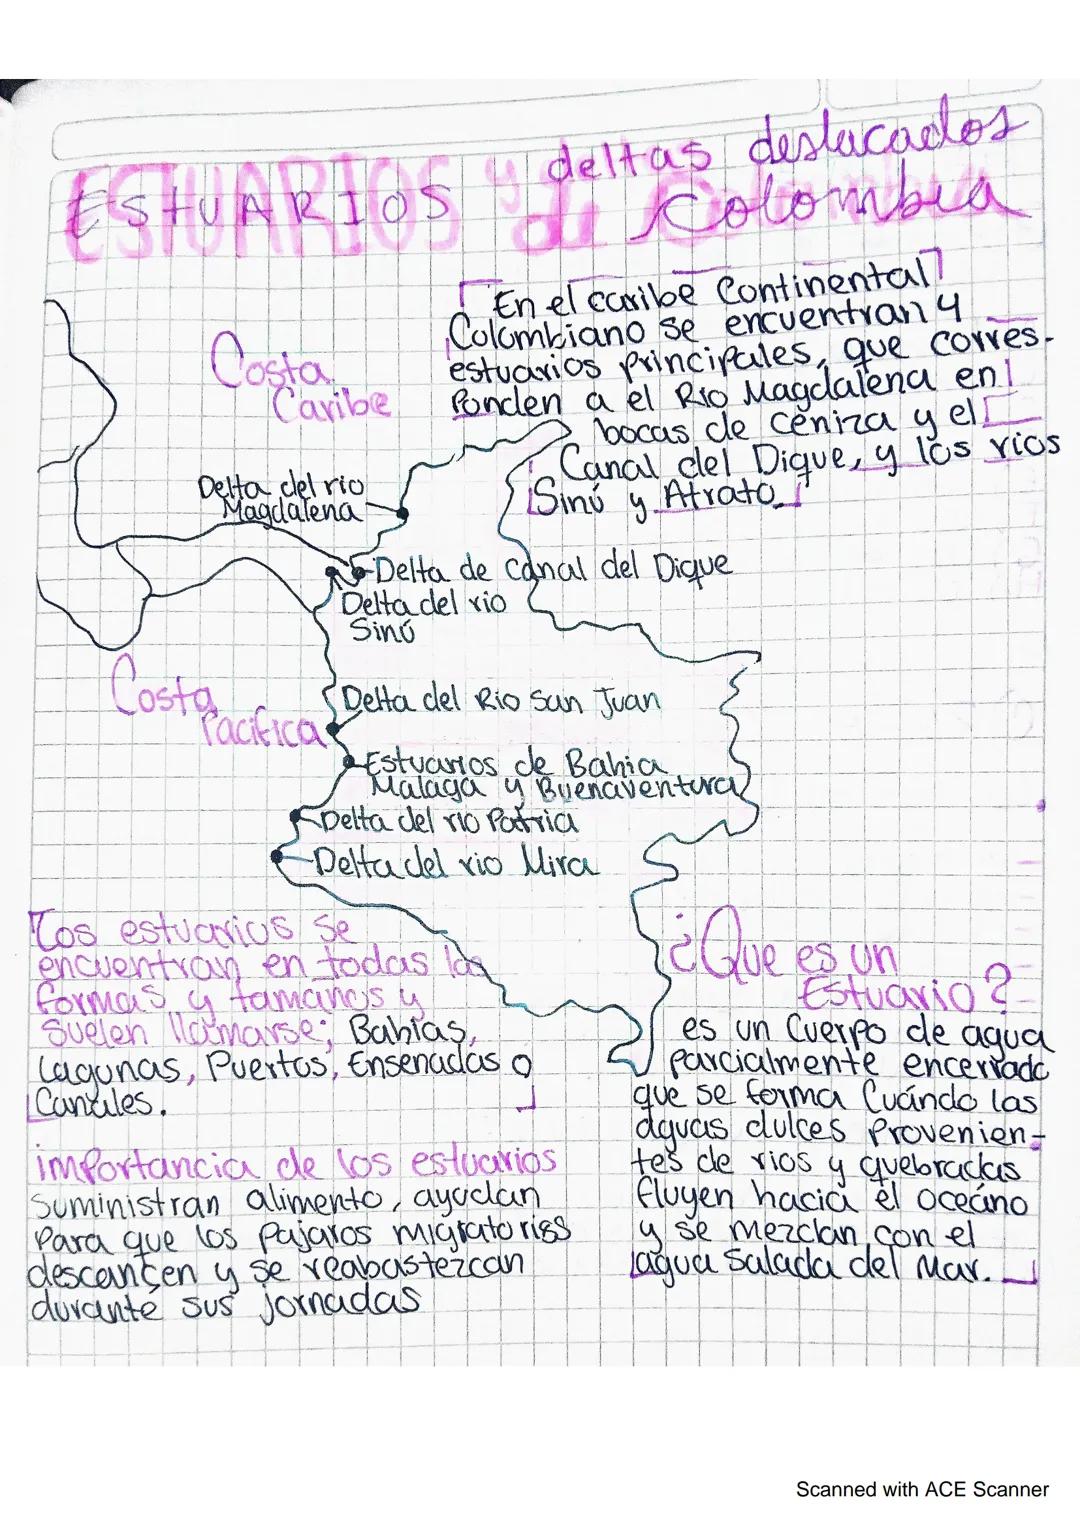 ESTUARIOS y deltas destacados
de Colombia
En el caribe Continental
Colombiano se encuentran 4
estuarios principales, que corres-
Ponden a el Rio Magdalena en
bocas de ceniza y el
Canal del Dique, y los rios
Sinú y Atrato
Costa
Caribe
Delta del rio
Magdalena
Delta de canal del Dique
Delta del rio
Sinú
Costa
Pacifica
Delta del Rio San Juan
Estuarios de Bahia
Malaga y Buenaventura
Delta del rio Patria
Delta del rio Mira
Los estuarios se
encuentran en todas las
formas y tamaños y
suelen llamarse; Bahias,
Lagunas, Puertos, Ensenadas o
Canales.
importancia de los estuarios
Suministran alimento, ayudan
Para que los pajaros migratorios
descancen y se reabastezcan
durante sus jornadas
¿Que es un
Estuario?
es un Cuerpo de agua
parcialmente encerrado
que se forma Cuándo las
aguas dulces Provenien-
tes de rios y quebradas
fluyen hacia el oceáno
y se mezclan con el
agua Salada del Mar.
Scanned with ACE Scanner